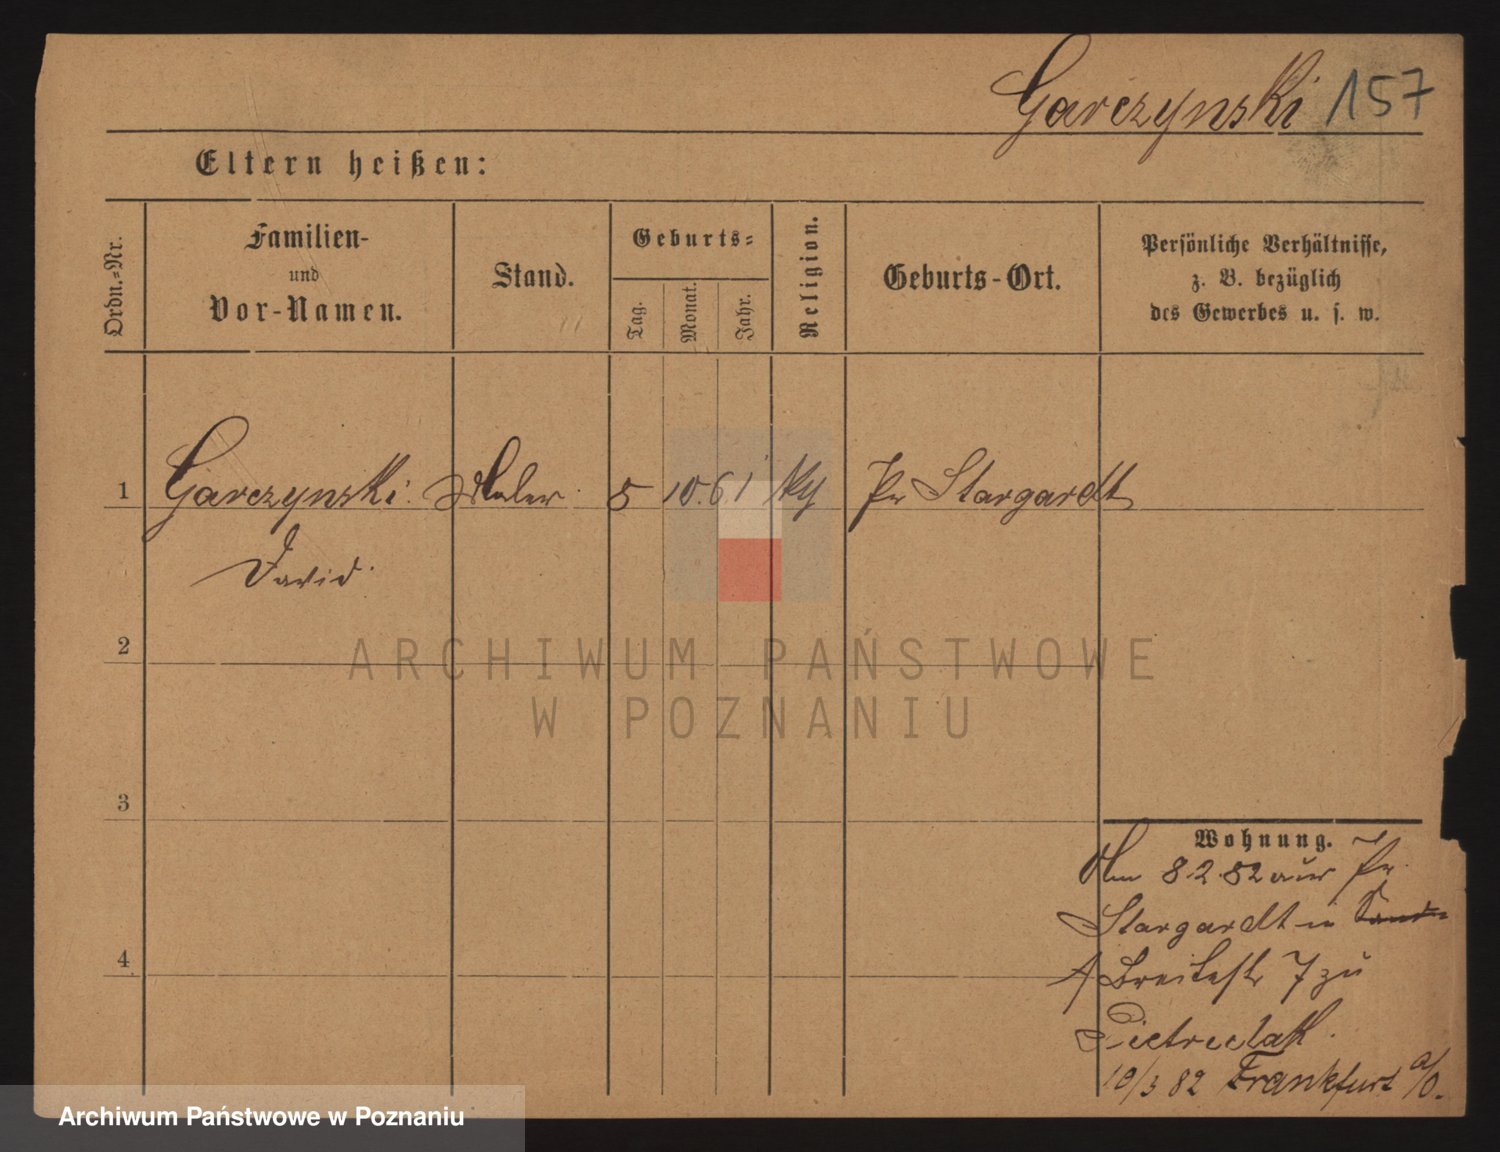 Garczynski 157
Eltern heißen:
Ordn.-Nr.
Familien-
und
Vor-Namen.
Stand.
Geburts-
Tag.
Monat.
Jahr.
Religion.
Geburts-Ort.
Persönliche Verhältnisse,
z. B. bezüglich
des Gewerbes u. s. w.
1 Garczynski Maler 5 10. 61 Pr Stargardt
David
2
3
4
Wohnung.
Am 8.2.82 aus Pr.
Stargardt in
Breitestr 7 zu
Pietrucha
10/3 82 Frankfurt a/O.
ARCHIWUM PAŃSTWOWE
W POZNANIU
Archiwum Państwowe w Poznaniu